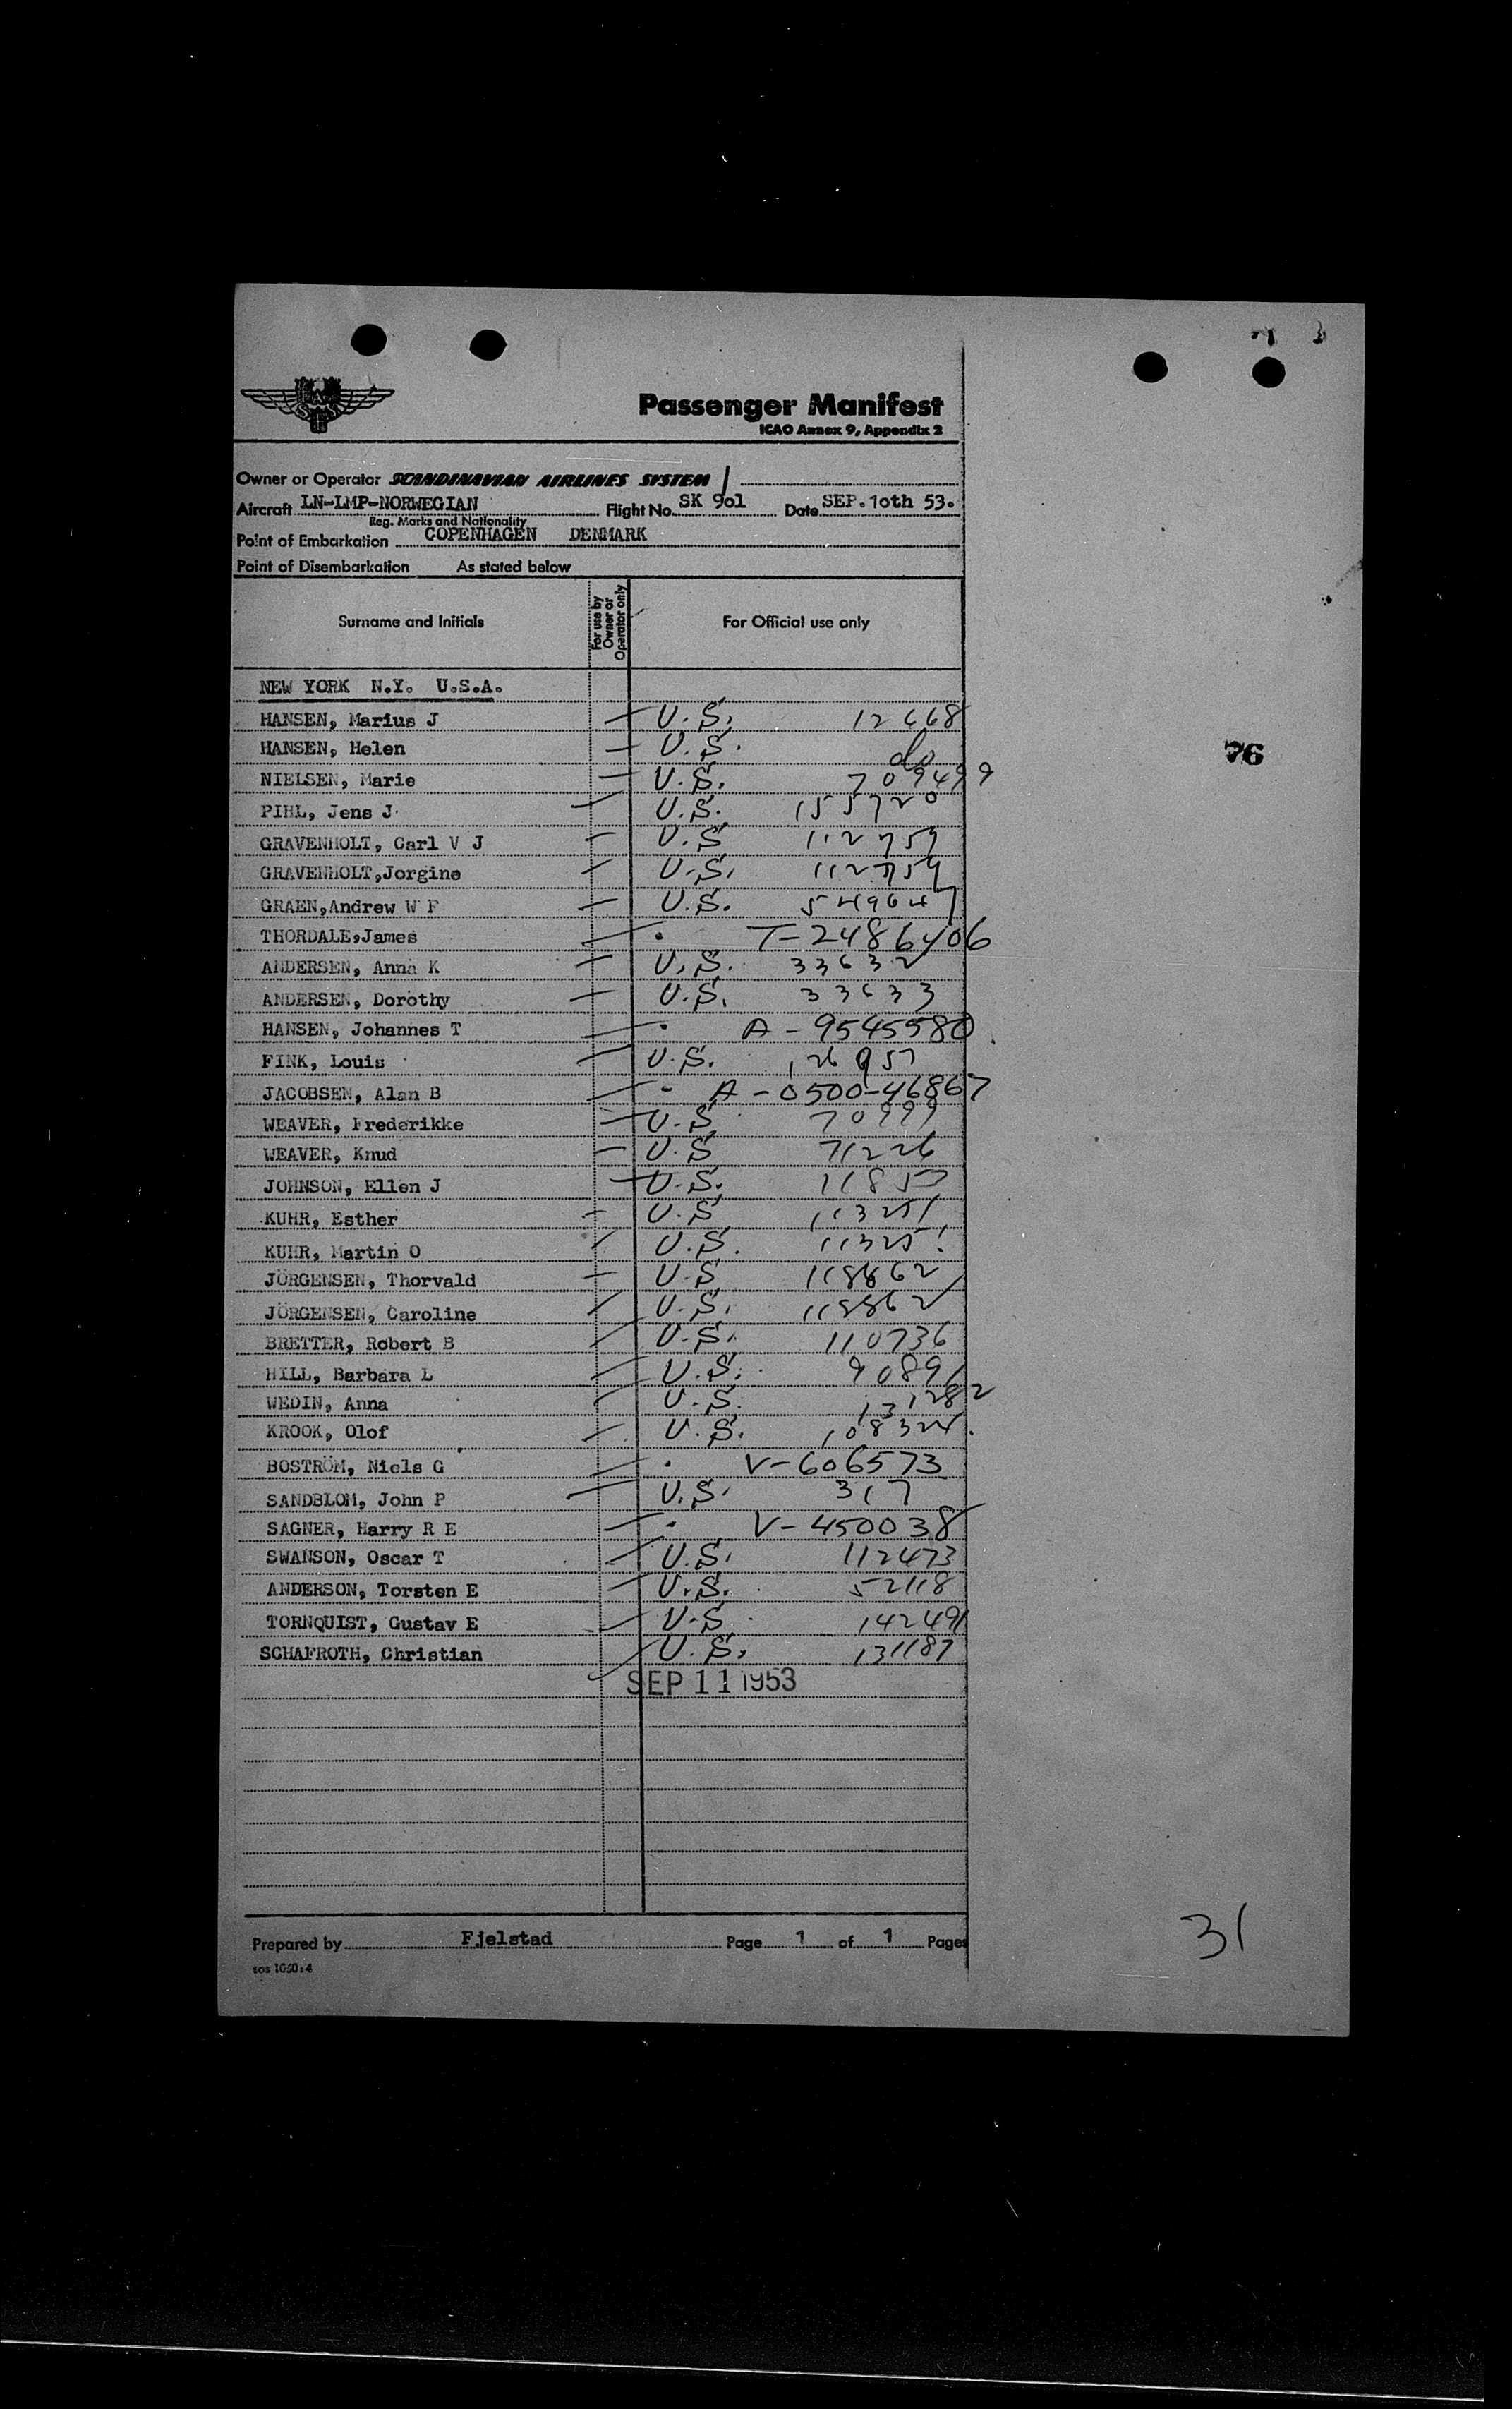 Passenger Manifest
ICAO Annex 9, Appendix 2
Owner or Operator SCANDINAVIAN AIRLINES SYSTEM
Aircraft LN-LMP-NORWEGIAN Flight No. SK 9o1 Date SEP.1oth 53.
Reg. Marks and Nationality
Point of Embarkation COPENHAGEN DENMARK
Point of Disembarkation As stated below
Surname and Initials For use by Owner or Operator only For Official use only
76
NEW YORK N.Y. U.S.A.
HANSEN, Marius J U.S. 12668
HANSEN, Helen U.S. do
NIELSEN, Marie U.S. 709499
PIHL, Jens J U.S. 155720
GRAVENHOLT, Carl V J U.S 112759
GRAVENHOLT,Jorgine U.S. 112759
GRAEN,Andrew W F U.S. 549647
THORDALE,James T-2486406
ANDERSEN, Anna K U.S. 33632
ANDERSEN, Dorothy U.S. 33633
HANSEN, Johannes T A-9545580
FINK, Louis U.S.
JACOBSEN, Alan B A-0500-46867
WEAVER, Frederikke U.S. 70999
WEAVER, Knud U.S 71226
JOHNSON, Ellen J U.S. 11850
KUHR, Esther U.S 113251
KUHR, Martin O U.S. 113251
JÖRGENSEN, Thorvald U.S 118862
JÖRGENSEN, Caroline U.S. 118862
BRETTER, Robert B U.S. 110736
HILL, Barbara L U.S. 90891
WEDIN, Anna U.S. 131282
KROOK, Olof U.S. 108324
BOSTRÖM, Niels G V-606573
SANDBLOM, John P U.S. 317
SAGNER, Harry R E V-450038
SWANSON, Oscar T U.S. 112473
ANDERSON, Torsten E U.S. 52118
TORNQUIST, Gustav E U.S 142491
SCHAFROTH, Christian U.S. 131187
SEP 11 1953
Prepared by Fjelstad Page 1 of 1 Pages
31